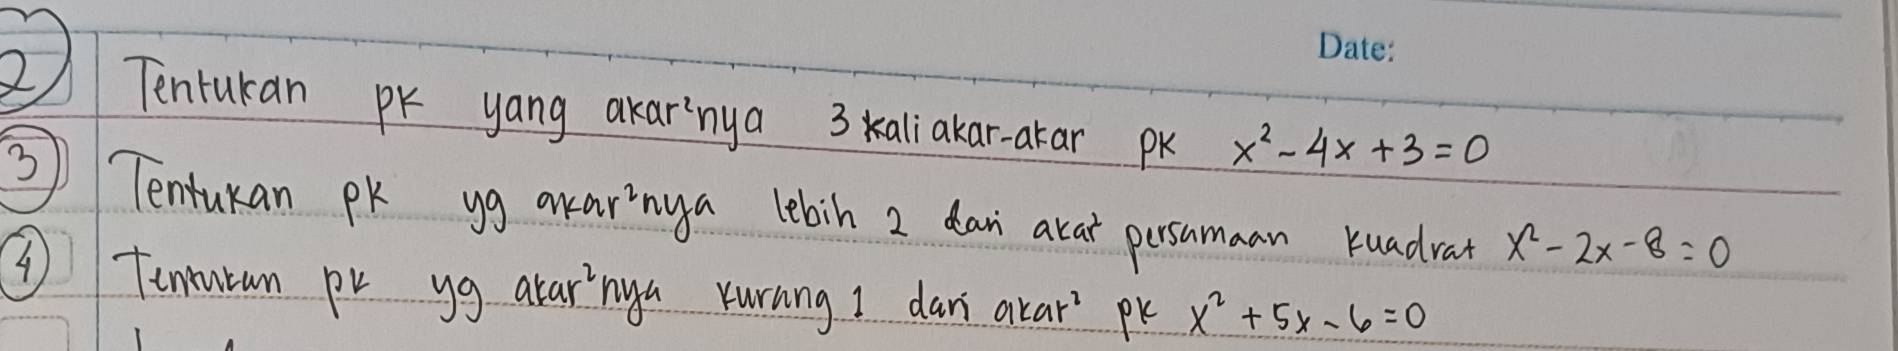 Date:
2 Tentukan pk yang akar²nya 3 kali akar-akar pk x² - 4x + 3 = 0
3 Tentukan pk yg akar²nya lebih 2 dari akar² persamaan kuadrat x² - 2x - 8 = 0
4 Tentukan pk yg akar²nya kurang 1 dari akar² pk x² + 5x - 6 = 0